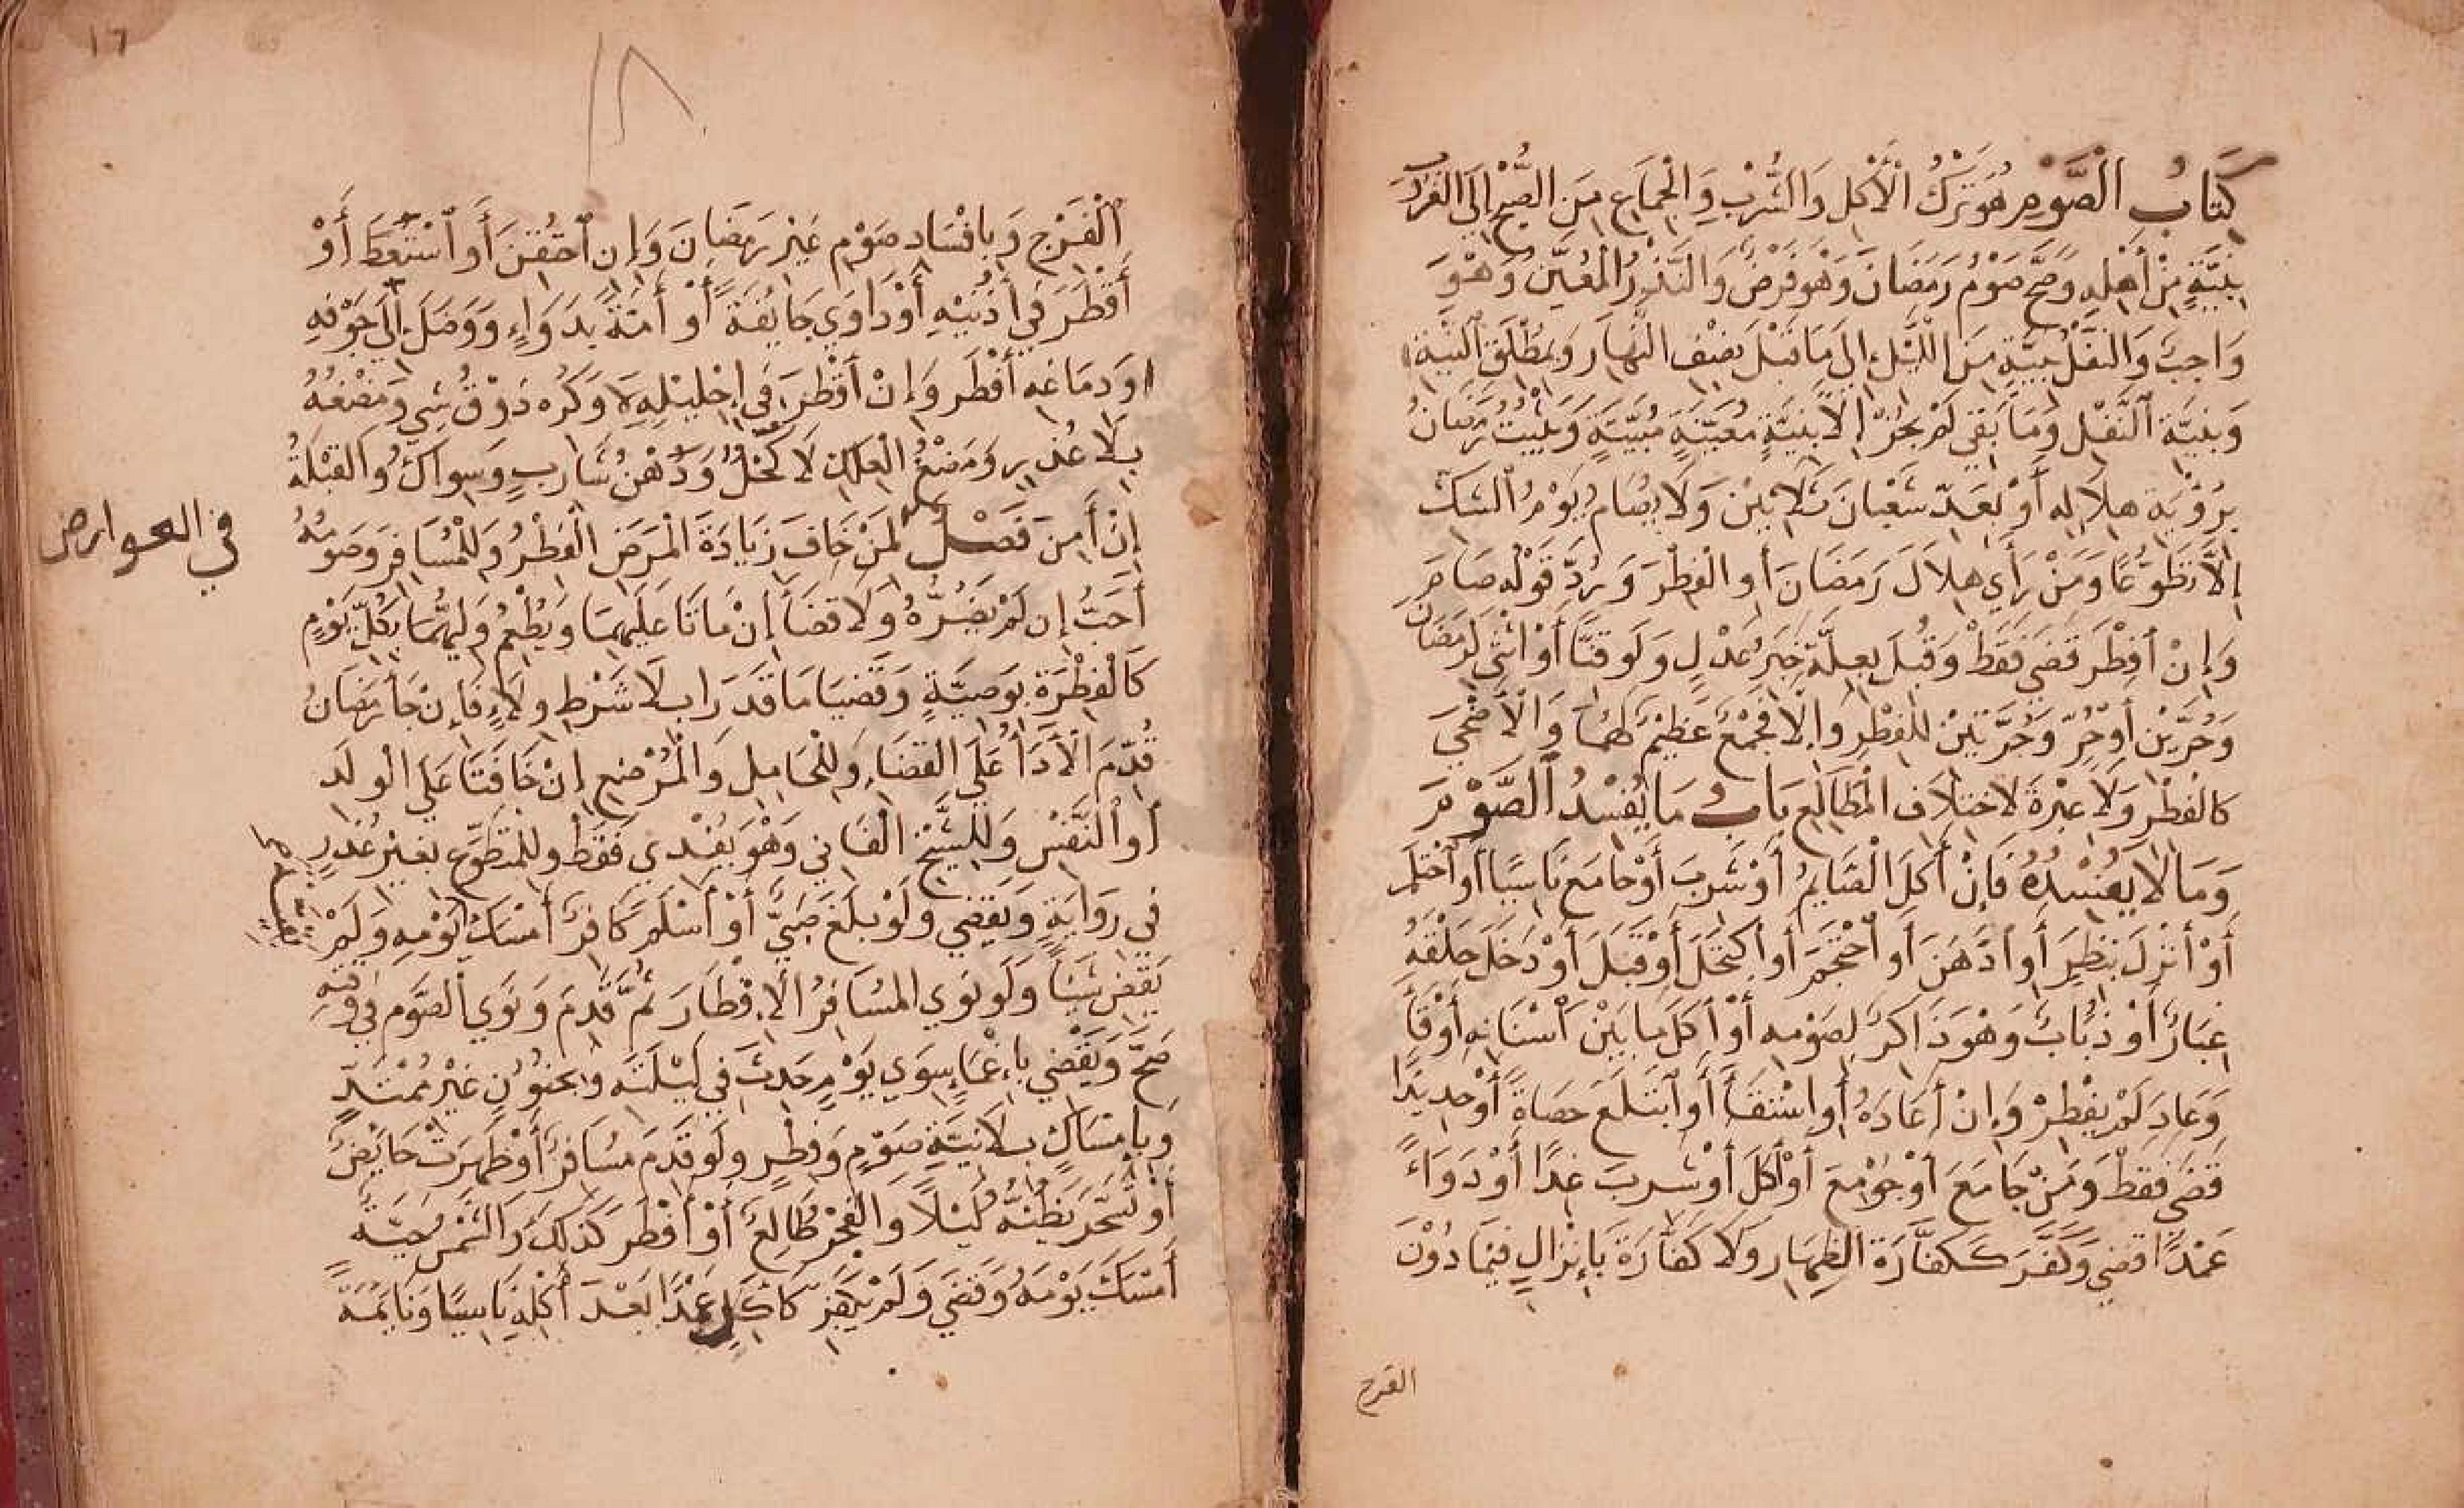 كِتَابُ الصَّوْمِ هُوَ تَرْكُ الْأَكْلِ وَالشُّرْبِ وَالْجِمَاعِ مِنَ الصُّبْحِ إِلَى الْغُرُوبِ
بِنِيَّةٍ مِنْ أَهْلِهِ وَصَحَّ صَوْمُ رَمَضَانَ وَهْوَ فَرْضٌ وَالنَّذْرُ الْمُعَيَّنُ وَهْوَ
وَاجِبٌ وَالنَّفْلُ بِنِيَّةٍ مِنَ اللَّيْلِ إِلَى مَا قَبْلَ نِصْفِ النَّهَارِ وَبِمُطْلَقِ النِّيَّةِ
وَبِنِيَّةِ النَّفْلِ وَمَا بَقِيَ لَمْ يَجُزْ إِلَّا بِنِيَّةٍ مُعَيَّنَةٍ مُبَيَّتَةٍ وَيَثْبُتُ رَمَضَانُ
بِرُؤْيَةِ هِلَالِهِ أَوْ بِعَدِّ شَعْبَانَ ثَلَاثِيْنَ وَلَا يُصَامُ يَوْمُ الشَّكِّ
إِلَّا تَطَوُّعًا وَمَنْ رَأَى هِلَالَ رَمَضَانَ أَوِ الْفِطْرَ وَرُدَّ قَوْلُهُ صَامَ
وَإِنْ أَفْطَرَ قَضَى فَقَطْ وَقُبِلَ بِعِلَّةٍ خَبَرُ عَدْلٍ وَلَوْ قِنًّا أَوْ أُنْثَى لِرَمَضَانَ
وَحُرَّيْنِ أَوْ حُرٍّ وَحُرَّتَيْنِ لِلْفِطْرِ وَإِلَّا فَجَمْعٌ عَظِيْمٌ لَهُمَا وَالْأَضْحَى
كَالْفِطْرِ وَلَا عِبْرَةَ لِاخْتِلَافِ الْمَطَالِعِ بَابُ مَا يُفْسِدُ الصَّوْمَ
وَمَا لَا يُفْسِدُهُ فَإِنْ أَكَلَ الصَّايِمُ أَوْ شَرِبَ أَوْ جَامَعَ نَاسِيًا أَوِ احْتَلَمَ
أَوْ أَنْزَلَ بِنَظَرٍ أَوِ ادَّهَنَ أَوِ احْتَجَمَ أَوِ اكْتَحَلَ أَوْ قَبَّلَ أَوْ دَخَلَ حَلْقَهُ
غُبَارٌ أَوْ ذُبَابٌ وَهْوَ ذَاكِرٌ لِصَوْمِهِ أَوْ أَكَلَ مَا بَيْنَ أَسْنَانِهِ أَوْ قَاءَ
وَعَادَ لَمْ يُفْطِرْ وَإِنْ أَعَادَهُ أَوِ اسْتَقَاءَ أَوِ ابْتَلَعَ حَصَاةً أَوْ حَدِيدًا
قَضَى فَقَطْ وَمَنْ جَامَعَ أَوْ جُوْمِعَ أَوْ أَكَلَ أَوْ شَرِبَ غِدًا أَوْ دَوَاءً
عَمْدًا قَضَى وَكَفَّرَ كَكَفَّارَةِ الظِّهَارِ وَلَا كَفَّارَةَ بِإِنْزَالٍ فِيْمَا دُوْنَ
الفرج
١٦
١٨
الْفَرْجِ وَبِإِفْسَادِ صَوْمِ غَيْرِ رَمَضَانَ وَإِنِ احْتَقَنَ أَوِ اسْتَعَطَ أَوْ
أَقْطَرَ فِي أُذُنَيْهِ أَوْ دَاوَى جَايِفَةً أَوْ أَمَّةً بِدَوَاءٍ وَوَصَلَ إِلَى جَوْفِهِ
أوْ دِمَاغِهِ أَفْطَرَ وَإِنْ أَقْطَرَ فِي إِحْلِيْلِهِ لَا وَكُرِهَ ذَوْقُ شَيٍ وَمَضْغُهُ
بِلَا عُذْرٍ وَمَضْغُ الْعِلْكِ لَا كُحْلٌ وَدَهْنُ شَارِبٍ وَسِوَاكٌ وَالْقُبْلَةُ
إِنْ أَمِنَ فَصْلٌ لِمَنْ خَافَ زِيَادَةَ الْمَرَضِ الْفِطْرُ وَلِلْمُسَافِرِ وَصَوْمُهُ
في العوارض
أَحَبُّ إِن لَمْ يَضُرَّهُ وَلَا قَضَاءَ إِنْ مَاتَا عَلَيْهِمَا وَيُطْعِمُ وَلِيُّهُمَا لِكُلِّ يَوْمٍ
كَالْفِطْرَةِ بِوَصِيَّةٍ وَقَضَيَا مَا قَدَرَا بِلَا شَرْطِ وِلَاءٍ فَإِنْ جَاءَ رَمَضَانُ
قُدِّمَ الْأَدَاءُ عَلَى الْقَضَاءِ وَلِلْحَامِلِ وَالْمُرْضِعِ إِنْ خَافَتَا عَلَى الْوَلَدِ
أَوِ النَّفْسِ وَلِلشَّيْخِ الْفَانِي وَهْوَ يَفْدِي فَقَطْ وَلِلْمُتَطَوِّعِ بِغَيْرِ عُذْرٍ
فِي رِوَايَةٍ وَيَقْضِي وَلَوْ بَلَغَ صَبِيٌّ أَوْ أَسْلَمَ كَافِرٌ أَمْسَكَ يَوْمَهِ وَلَمْ
يَقْضِ شَيْئًا وَلَوْ نَوَى الْمُسَافِرُ الْإِفْطَارَ ثُمَّ قَدِمَ وَنَوَى الصَّوْمَ فِي وَقْتِهِ
صَحَّ وَيَقْضِي بِإِغْمَاءٍ سِوَى يَوْمٍ حَدَثَ فِي لَيْلَتِهِ وَبِجُنُوْنٍ غَيْرِ مُمْتَدٍّ
وَبِإِمْسَاكٍ بِلَا نِيَّةِ صَوْمٍ وَفِطْرٍ وَلَوْ قَدِمَ مُسَافِرٌ أَوْ طَهُرَتْ حَايِضٌ
أَوْ تَسَحَّرَ يَظُنُّهُ لَيْلًا وَالْفَجْرُ طَالِعٌ أَوْ أَفْطَرَ كَذَلِكَ وَالشَّمْسُ حَيَّةٌ
أَمْسَكَ يَوْمَهُ وَقَضَى وَلَمْ يُكَفِّرْ كَأَكْلٍ عَمْدًا بَعْدَ أَكْلِهِ نَاسِيًا وَنَايِمَةٌ